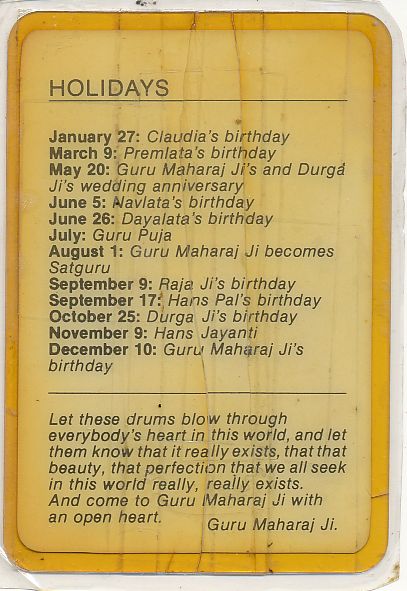 HOLIDAYS
January 27: Claudia's birthday
March 9: Premlata's birthday
May 20: Guru Maharaj Ji's and Durga
Ji's wedding anniversary
June 5: Navlata's birthday
June 26: Dayalata's birthday
July: Guru Puja
August 1: Guru Maharaj Ji becomes
Satguru
September 9: Raja Ji's birthday
September 17: Hans Pal's birthday
October 25: Durga Ji's birthday
November 9: Hans Jayanti
December 10: Guru Maharaj Ji's
birthday
Let these drums blow through
everybody's heart in this world, and let
them know that it really exists, that that
beauty, that perfection that we all seek
in this world really, really exists.
And come to Guru Maharaj Ji with
an open heart.
Guru Maharaj Ji.